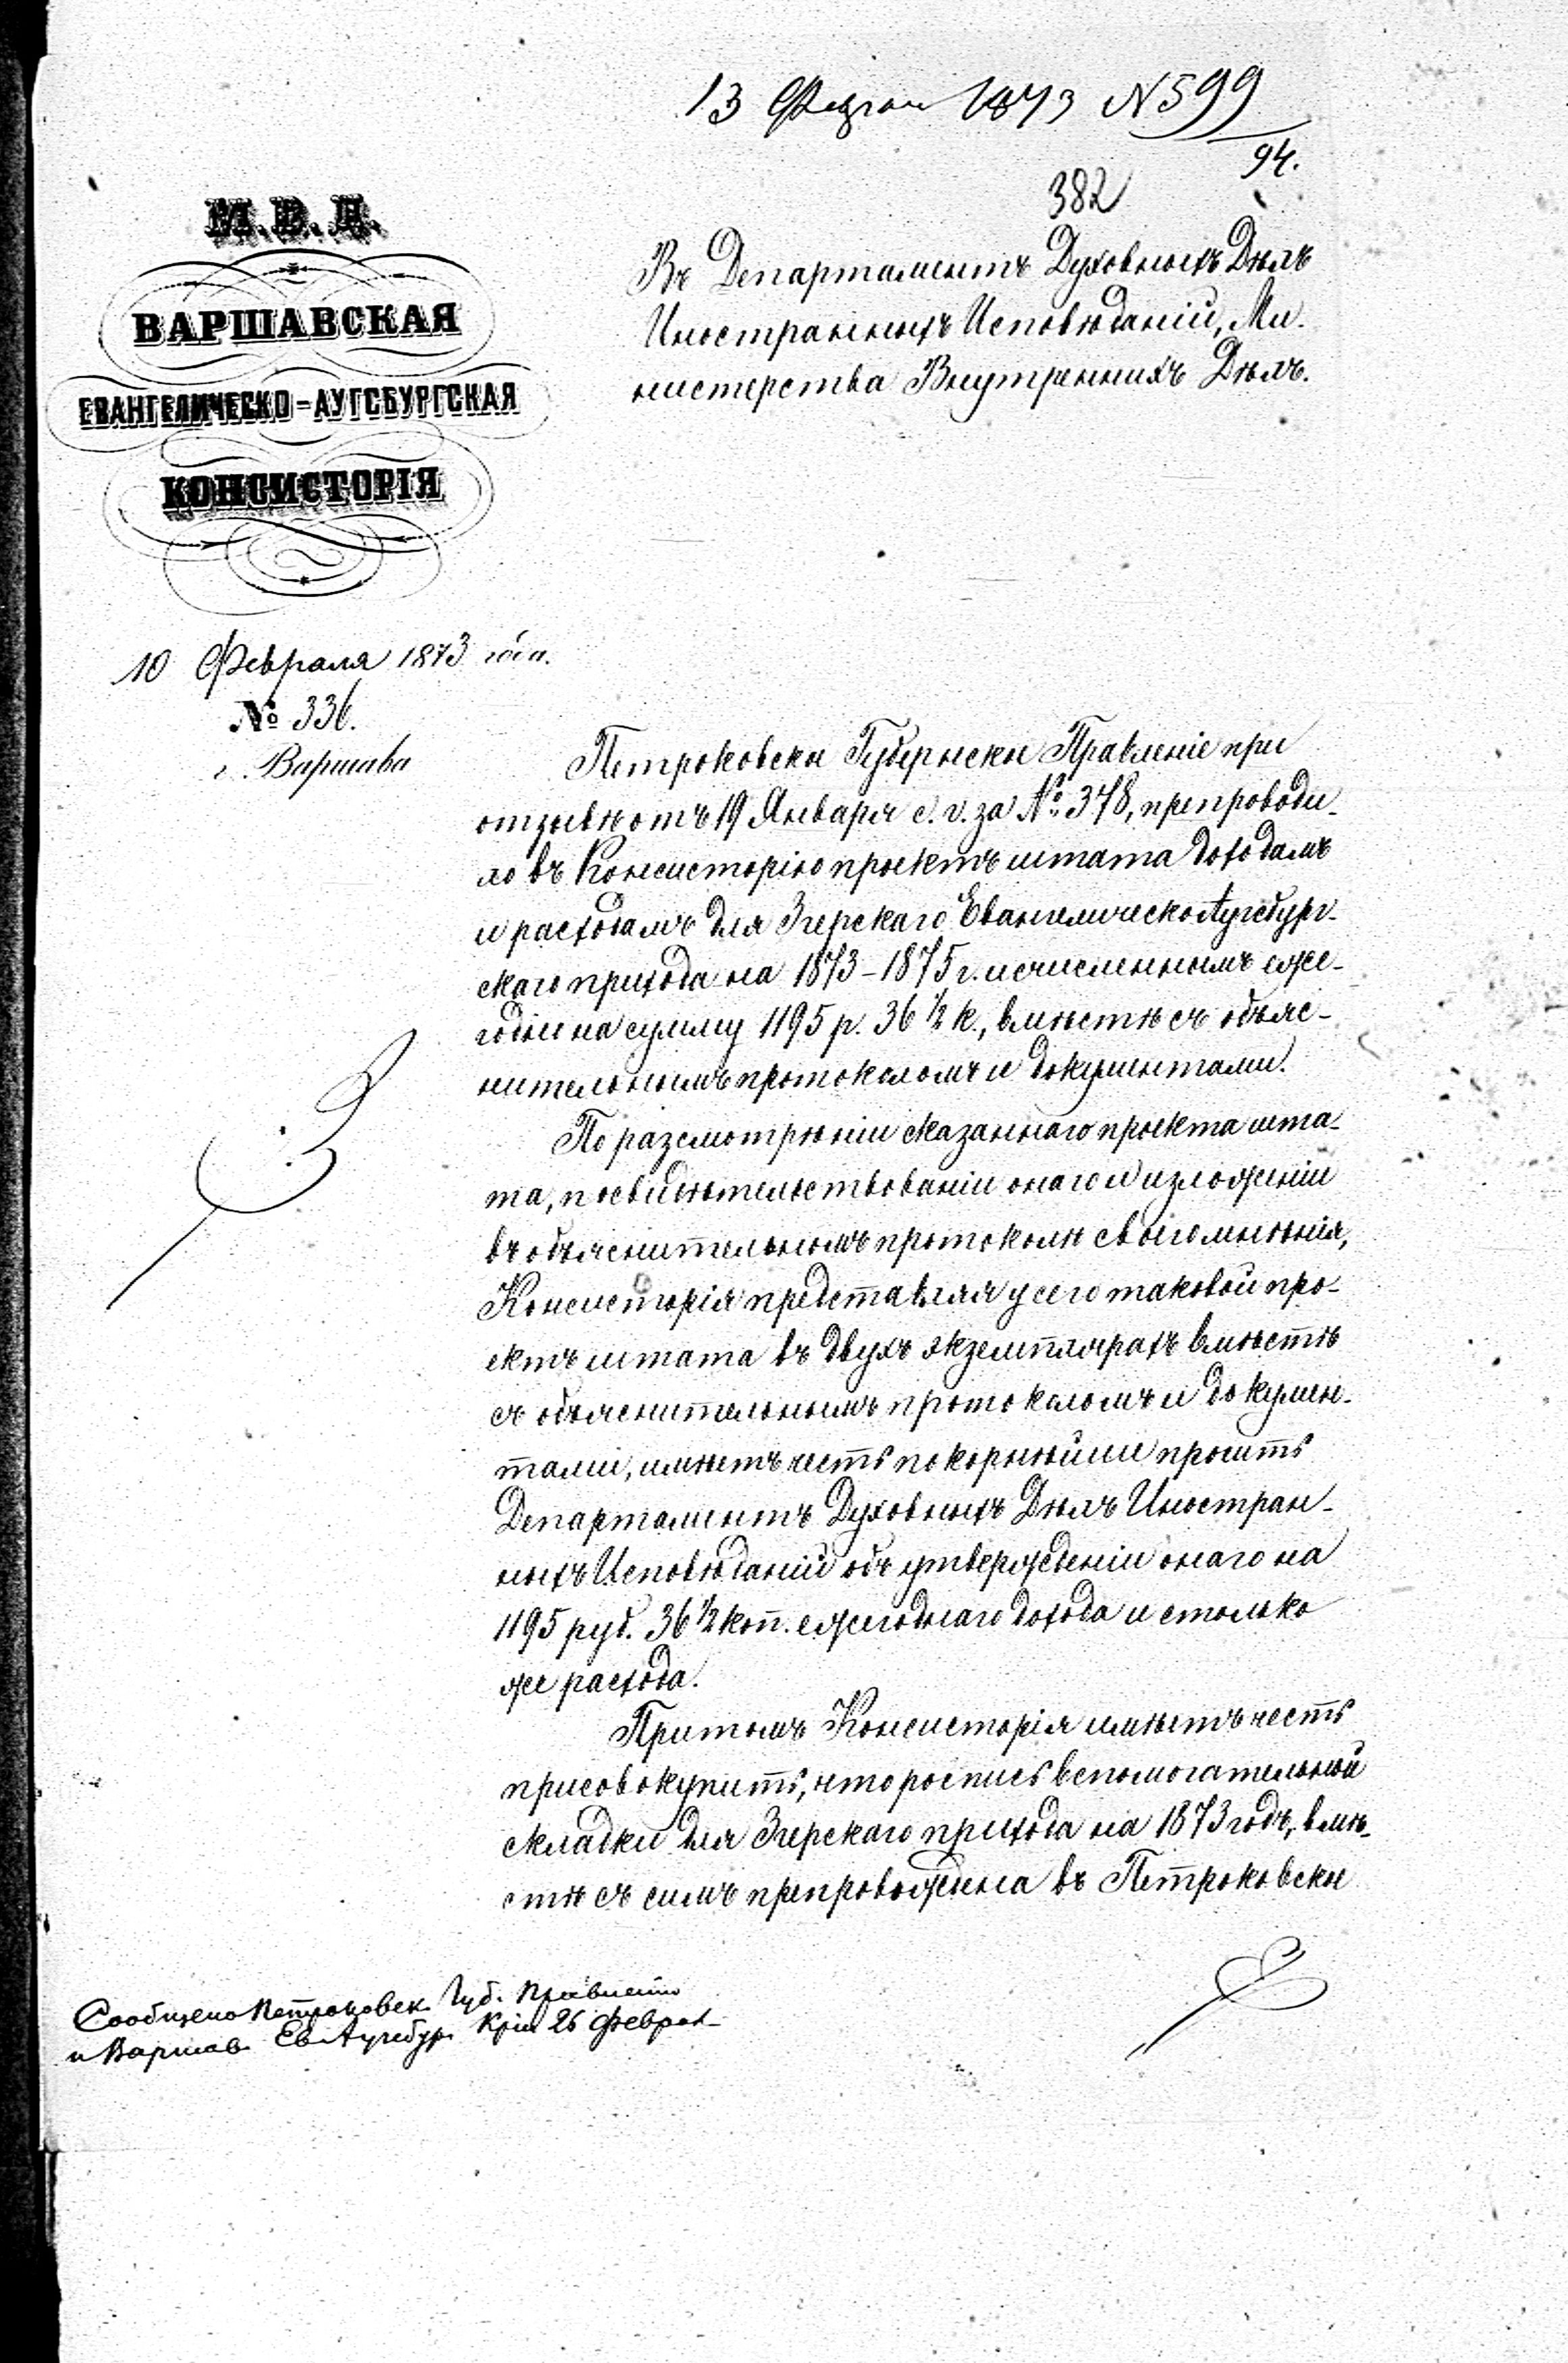 13 Февраля 1873 N 599
94.
382
М. В. Д.
ВАРШАВСКАЯ
ЕВАНГЕЛИЧЕСКО-АУГСБУРГСКАЯ
КОНСИСТОРІЯ
Въ Департаментъ Духовныхъ Дѣлъ
Иностранныхъ Исповѣданій, Ми-
нистерства Внутреннихъ Дѣлъ.
10 Февраля 1873 года.
№ 336.
г. Варшава
Петроковское Губернское Правленіе при
отзывѣ отъ 19 Января с. г. за №. 378, препроводи-
ло въ Консисторію проектъ штата доходамъ
и расходамъ для Згерскаго Евангелическо Аугсбург-
скаго прихода на 1873-1875 г. исчисленнымъ еже-
годно на сумму 1195 р. 36 1/2 к., вмѣстѣ съ объяс-
нительнымъ протоколомъ и документами.
По разсмотрѣніи сказаннаго проекта шта-
та, посвидѣтельствованіи онаго и изложеніи
въ объяснительномъ протоколѣ своего мнѣнія,
Консисторія представляя у сего таковой про-
ектъ штата въ двухъ экземплярахъ вмѣстѣ
съ объяснительнымъ протоколомъ и докумен-
тами, имѣетъ честь покорнѣйше просить
Департаментъ Духовныхъ Дѣлъ Иностран-
ныхъ Исповѣданій объ утвержденіи онаго на
1195 руб. 36 1/2 коп. ежегоднаго дохода и столько
же расхода.
Притомъ Консисторія имѣетъ честь
присовокупить, что роспись вспомогательной
складки для Згерскаго прихода на 1873 годъ, вмѣ-
стѣ съ симъ препровождена въ Петроковское
Сообщено Петроковск. Губ. Правленію
и Варшав. Ев. Аугсбур. Кріи 26 Феврал